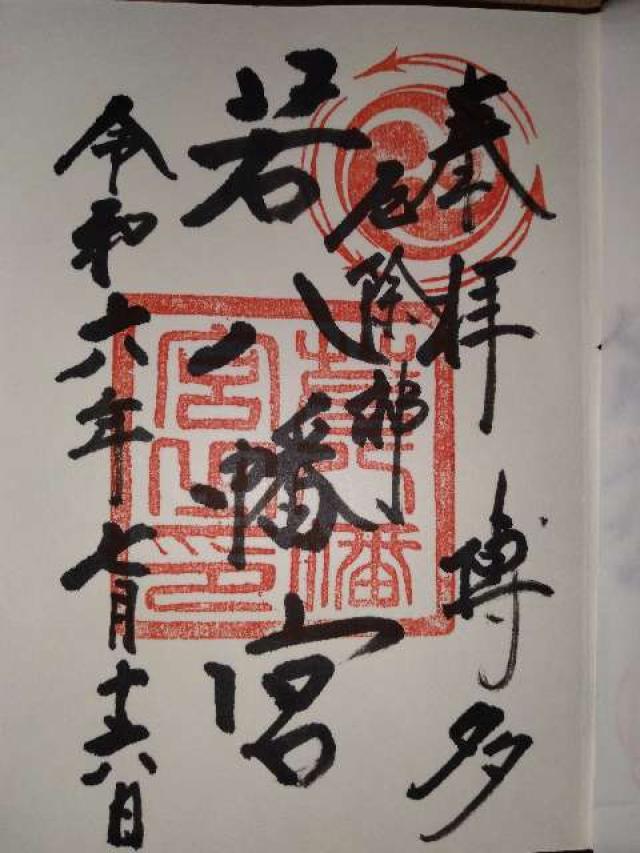 奉拝 博多
厄除神
若八幡宮
令和六年七月十六日
若八幡
宮之印